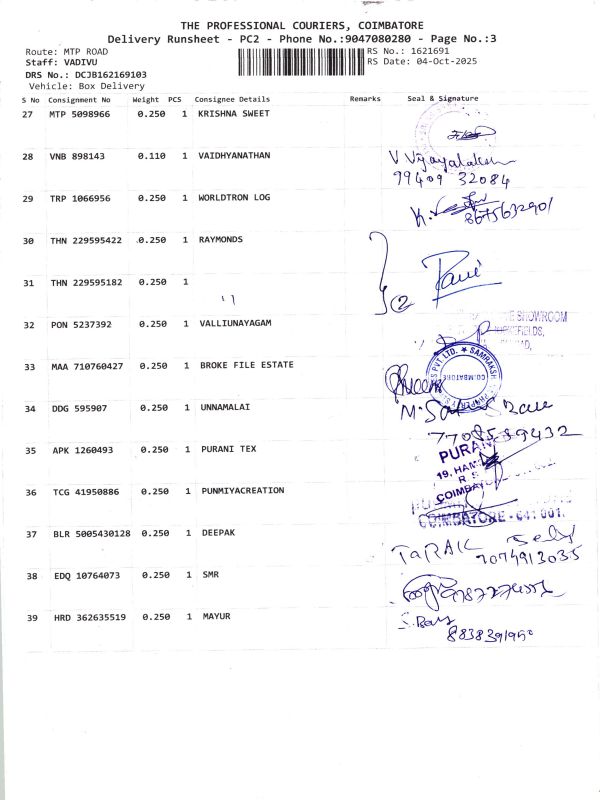 THE PROFESSIONAL COURIERS, COIMBATORE
Delivery Runsheet - PC2 - Phone No.:9047080280 - Page No.:3
Route: MTP ROAD
RS No.: 1621691
Staff: VADIVU
RS Date: 04-Oct-2025
DRS No.: DCJB162169103
Vehicle: Box Delivery
S No Consignment No Weight PCS Consignee Details Remarks Seal & Signature
27 MTP 5098966 0.250 1 KRISHNA SWEET
28 VNB 898143 0.110 1 VAIDHYANATHAN
V Vijayalakshmi
99409 32084
29 TRP 1066956 0.250 1 WORLDTRON LOG
8675632901
30 THN 229595422 0.250 1 RAYMONDS
31 THN 229595182 0.250 1
"
2
32 PON 5237392 0.250 1 VALLIUNAYAGAM
SHOWROOM
33 MAA 710760427 0.250 1 BROKE FILE ESTATE
PVT LTD. ★ SAMRAKSH
COIMBATORE
34 DDG 595907 0.250 1 UNNAMALAI
7708539432
35 APK 1260493 0.250 1 PURANI TEX
PURANI
19, HAM
R S
COIMBATORE
36 TCG 41950886 0.250 1 PUNMIYACREATION
COIMBATORE - 641 001.
37 BLR 5005430128 0.250 1 DEEPAK
TARAK
7074913035
38 EDQ 10764073 0.250 1 SMR
39 HRD 362635519 0.250 1 MAYUR